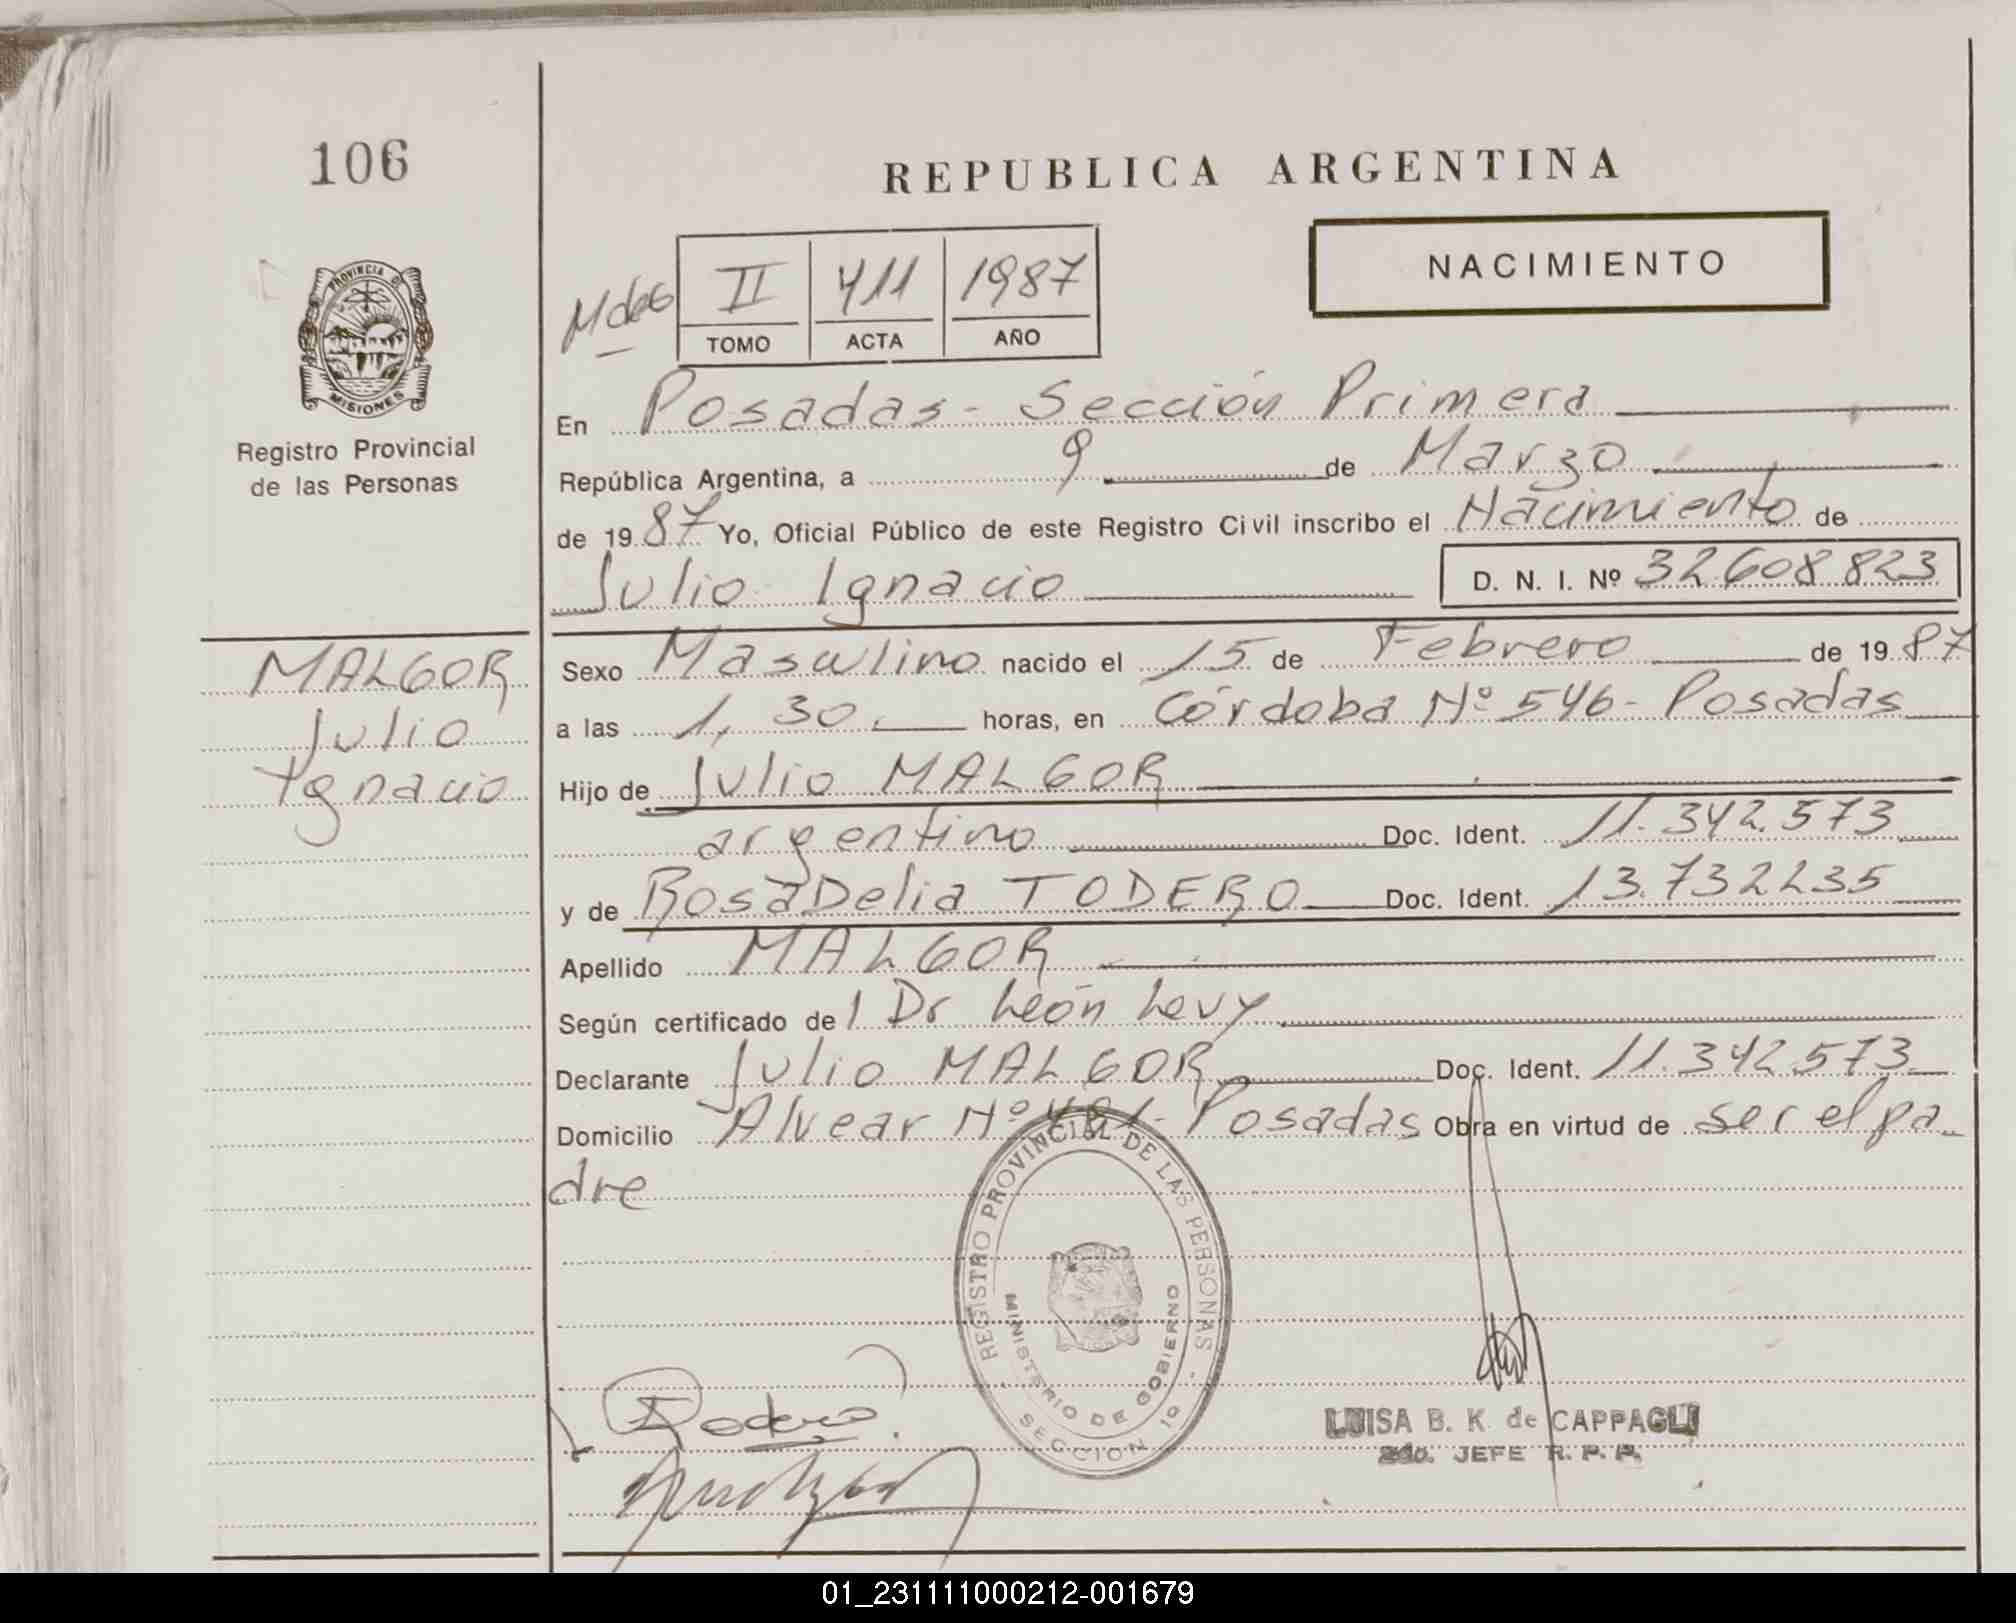 106
REPUBLICA ARGENTINA
NACIMIENTO
II 411 1987
TOMO ACTA AÑO
PROVINCIA DE
MISIONES
Registro Provincial
de las Personas
En Posadas - Sección Primera
República Argentina, a 9 de Marzo
de 1987 Yo, Oficial Público de este Registro Civil inscribo el Nacimiento de
Julio Ignacio D. N. I. Nº 32.608.823
MALGOR
Julio
Ignacio
Sexo Masculino nacido el 15 de Febrero de 1987
a las 1,30 horas, en Córdoba Nº 546 - Posadas
Hijo de Julio MALGOR
argentino Doc. Ident. 11.342.573
y de Rosa Delia TODERO Doc. Ident. 13.732235
Apellido MALGOR
Según certificado del Dr León Levy
Declarante Julio MALGOR Doc. Ident. 11.342.573
Domicilio Alvear Nº Posadas Obra en virtud de ser el pa-
dre
REGISTRO PROVINCIAL DE LAS PERSONAS
MINISTERIO DE GOBIERNO
SECCION 1º
Todero
LUISA B. K. de CAPPAGLI
2do. JEFE R. P. P.
01_231111000212-001679